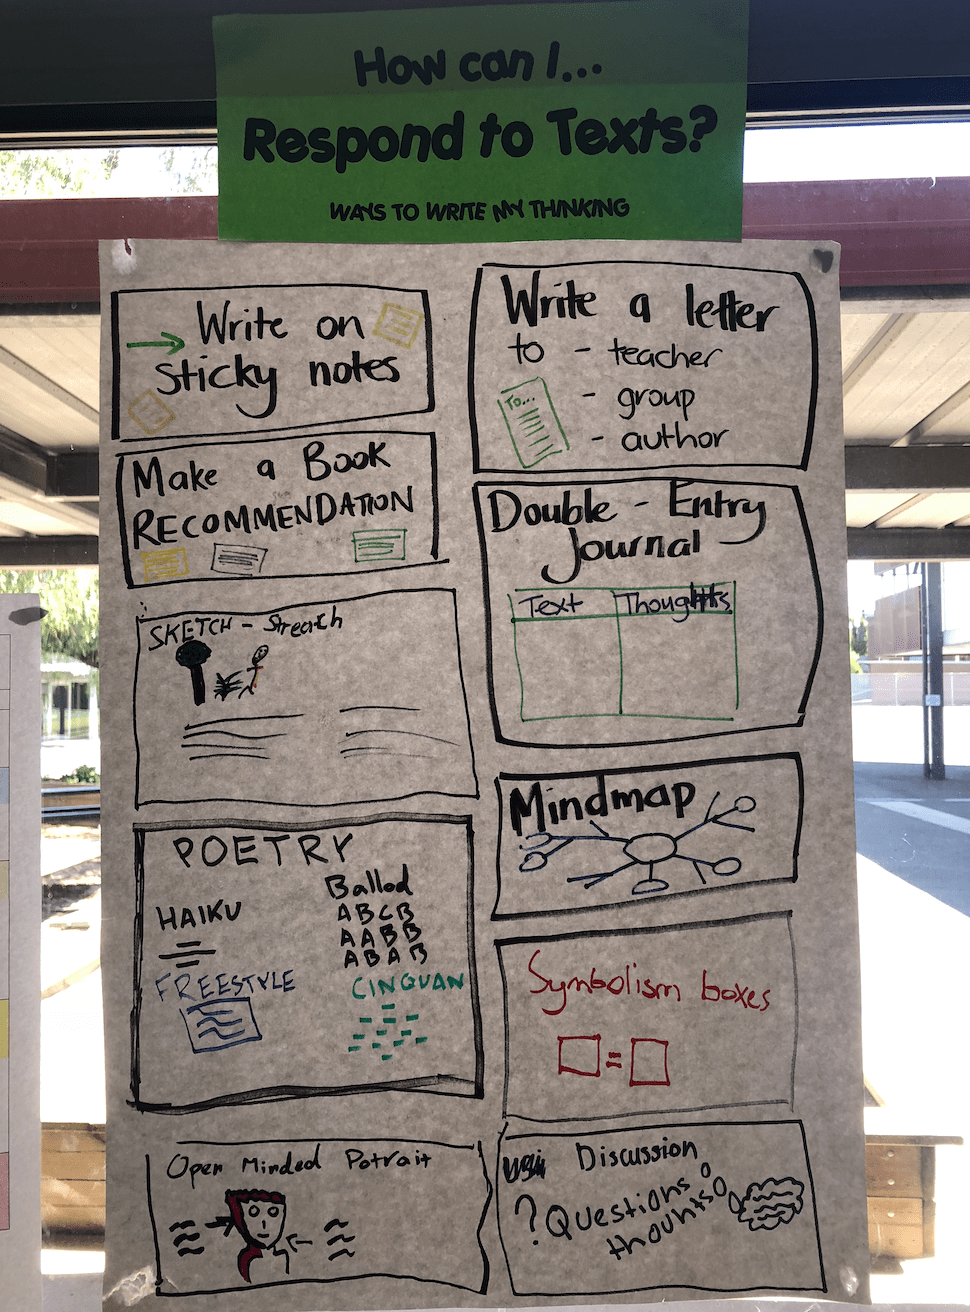 How can I...
Respond to Texts?
WAYS TO WRITE MY THINKING
Write on
sticky notes
Make a Book
RECOMMENDATION
SKETCH - Streatch
POETRY
HAIKU
FREESTYLE
Ballad
ABCB
AABB
ABAB
CINQUAN
Open Minded Potrait
Write a letter
to - teacher
- group
- author
To...
Double - Entry
Journal
Text Thoughts
Mindmap
Symbolism boxes
=
Discussion
? Questions
thounts